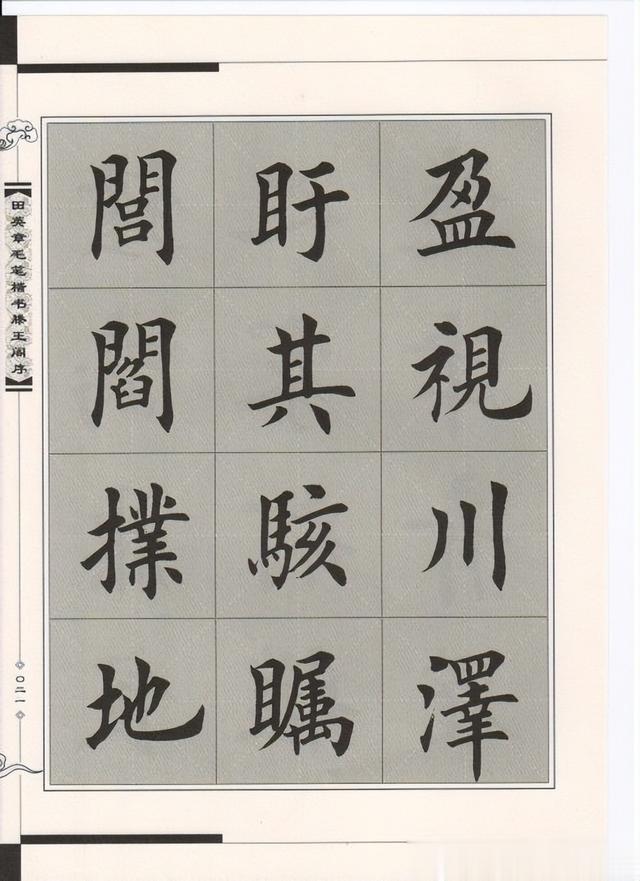 盈視川澤
盱其駭矚
閭閻撲地
田英章毛笔楷书滕王阁序
〇二一